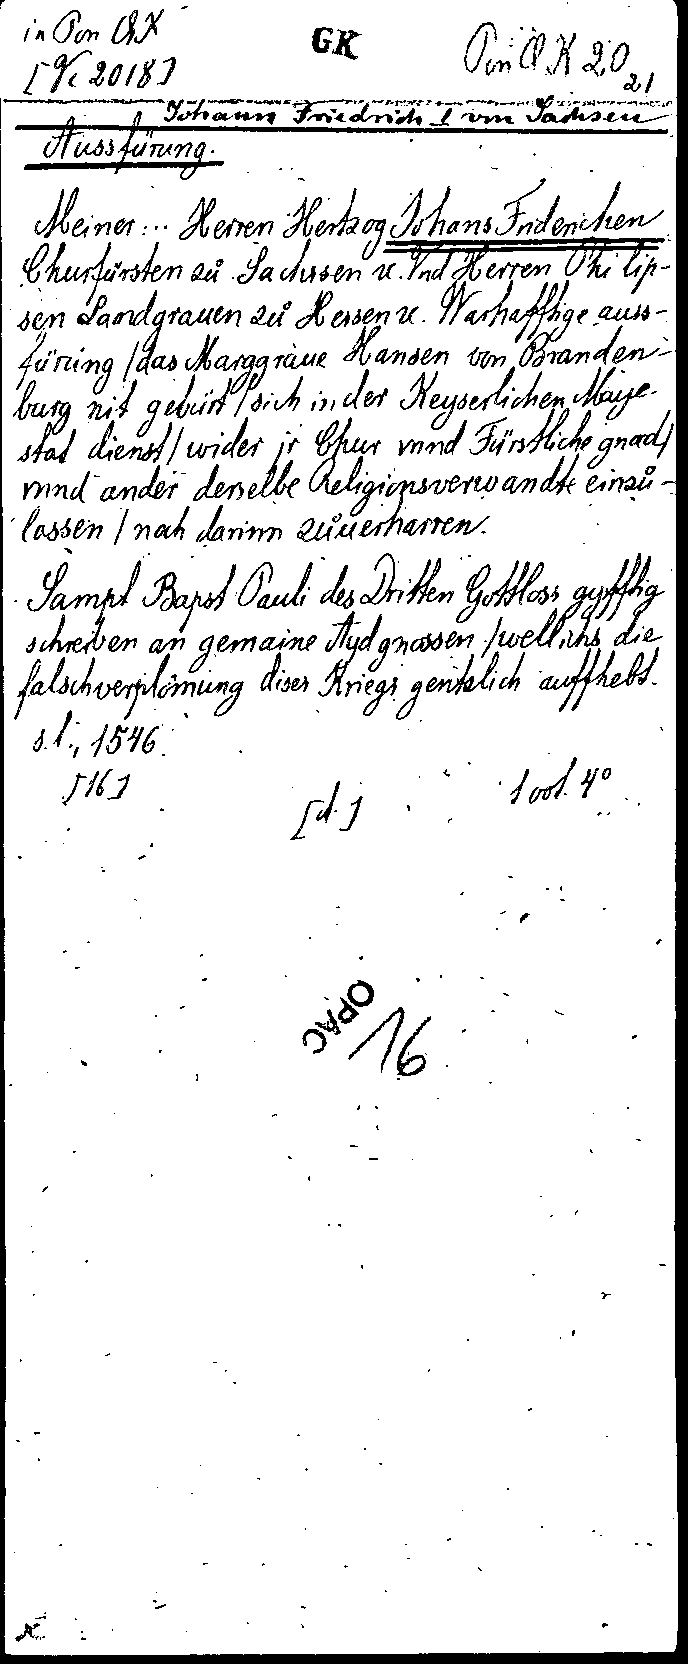 in Pon QK
GK
Pon QK 20
21
[Vc 2018]
Johann Friedrich I von Sachsen
Aussfürung.
Meiner ... Herren Hertzog Johans Friderichen
Churfürsten zů Sachssen ꝛc. Vnd Herren Philip-
sen Landgrauen zů Hessen ꝛc. Warhafftige auss-
fürung / das Marggraue Hansen von Branden-
burg nit gebürt / sich in der Keyserlichen Maye-
stat dienst / wider jr Chur vnnd Fürstliche gnad /
vnnd ander derselbe Religionsverwandte einzů-
lassen / noch darinn zůuerharren.
Sampt Bapst Pauli des Dritten Gottloss gyfftig
schreiben an gemaine Aydgnossen / wellichs die
falsch verplömung dises Kriegs gentzlich auffhebt.
s.l., 1546.
[16]
[d.]
1 vol. 4°
OPAC
16